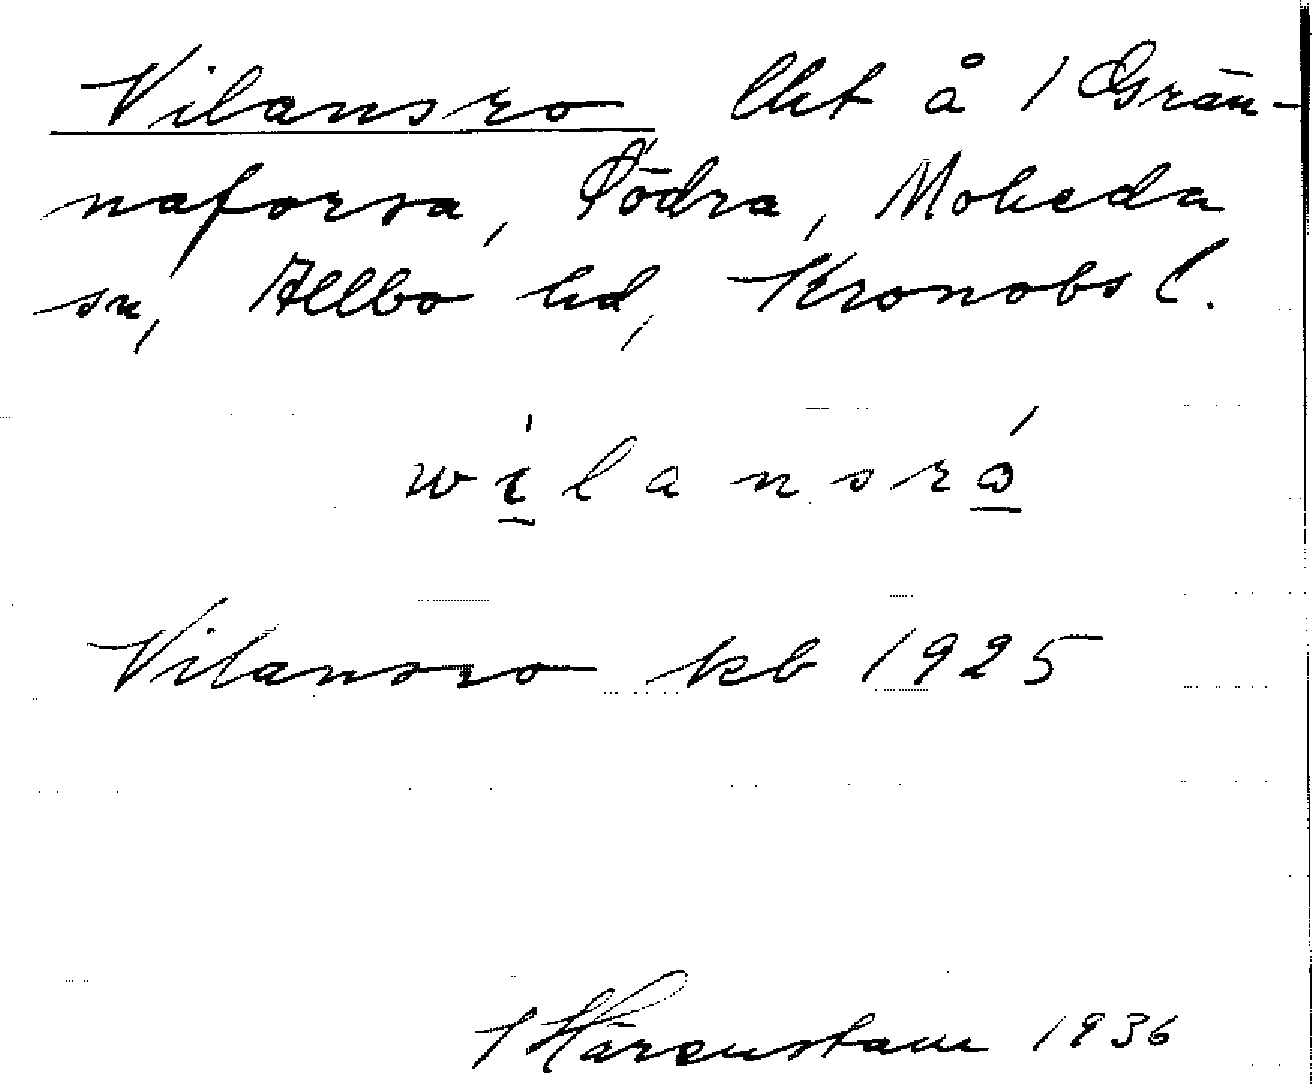 Vilansro lht å 1 Grän-
naforsa, Södra, Moheda
sn, Allbo hd, Kronobs l.
wílansró
Vilansro kb 1925
Härenstam 1936